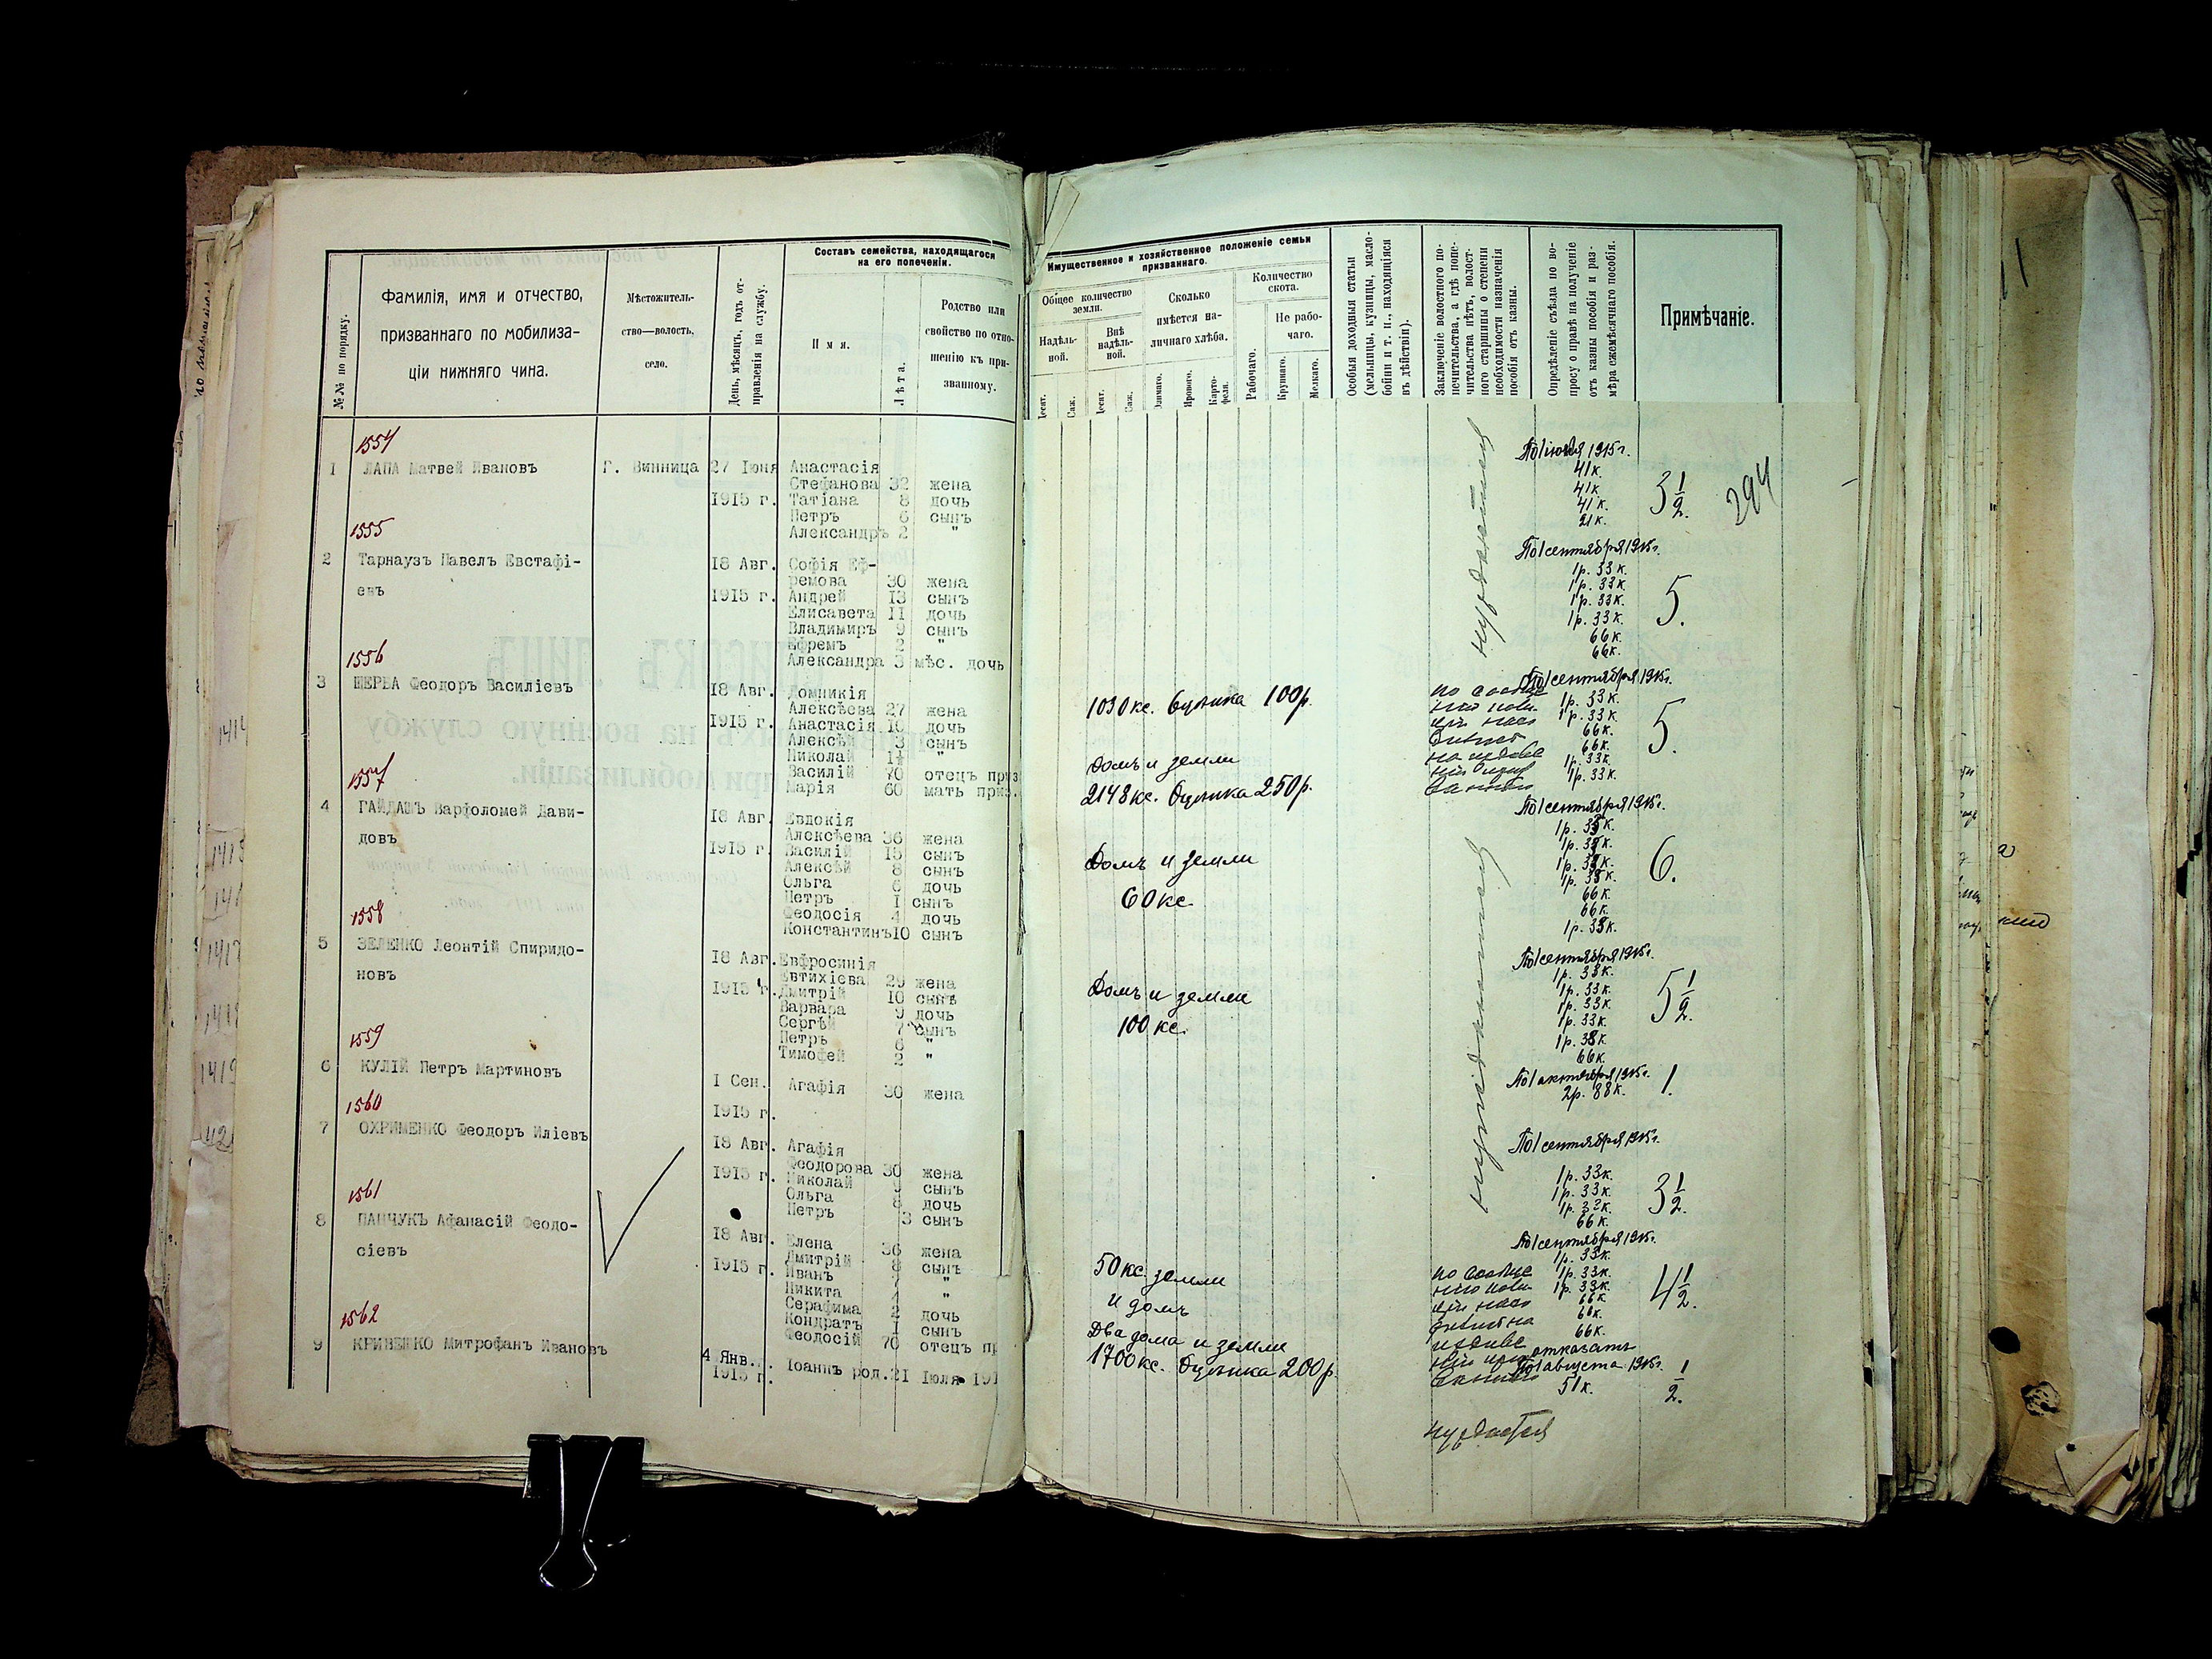 №№ по порядку.
Фамилія, имя и отчество,
призваннаго по мобилиза-
ціи нижняго чина.
Мѣстожитель-
ство—волость,
село.
День, мѣсяцъ, годъ от-
правленія на службу.
Составъ семейства, находящагося
на его попеченіи.
Имя.
Лѣта.
Родство или
свойство по отно-
шенію къ при-
званному.
1554
1 ЛАПА Матвей Ивановъ Г. Винница 27 Іюня Анастасія
Стефанова 32 жена
1915 г. Татіана 8 дочь
Петръ 6 сынъ
Александръ 2 "
1555
2 Тарнаузъ Павелъ Евстафі- 18 Авг. Софія Еф-
ремова 30 жена
евъ 1915 г. Андрей 13 сынъ
Елисавета 11 дочь
Владимиръ 9 сынъ
Ефремъ 2 "
Александра 3 мѣс. дочь
1556
3 ЩЕРБА Феодоръ Василіевъ 18 Авг. Домникія
Алексѣева 27 жена
1915 г. Анастасія 10 дочь
Алексѣй 3 сынъ
Николай 1½ "
Василій 70 отецъ приз
Марія 60 мать приз.
1557
4 ГАЙДАШЪ Варфоломей Дави- 18 Авг. Евдокія
Алексѣева 36 жена
довъ 1915 г. Василій 15 сынъ
Алексѣй 8 сынъ
Ольга 6 дочь
Петръ 1 сынъ
Феодосія 4 дочь
Константинъ 10 сынъ
1558
5 ЗЕЛЕНКО Леонтій Спиридо- 18 Авг. Евфросинія
Евтихіева 29 жена
новъ 1915 г. Дмитрій 10 сынъ
Варвара 9 дочь
Сергѣй 7 сынъ
Петръ 6 "
Тимофей 2 "
1559
6 КУЛІЙ Петръ Мартиновъ 1 Сен. Агафія 30 жена
1915 г.
1560
7 ОХРИМЕНКО Феодоръ Иліевъ 18 Авг. Агафія
Феодорова 30 жена
1915 г. Николай 9 сынъ
Ольга дочь
Петръ 3 сынъ
1561
8 ПАНЧУКЪ Афанасій Феодо- 18 Авг. Елена 36 жена
сіевъ Дмитрій 8 сынъ
1915 г. Иванъ 7 "
Никита "
Серафима 2 дочь
Кондратъ сынъ
Феодосій 70 отецъ пр
1562
9 КРИВЕНКО Митрофанъ Ивановъ 4 Янв. Іоаннъ род. 21 Іюля 191
1915 г.
Имущественное и хозяйственное положеніе семьи
призваннаго.
Общее количество
земли.
Надѣль-
ной.
Внѣ
надѣль-
ной.
Десят.
Саж.
Десят.
Саж.
Сколько
имѣется на-
личнаго хлѣба.
Озимаго.
Ярового.
Карто-
феля.
Количество
скота.
Рабочаго.
Не рабо-
чаго.
Крупнаго.
Мелкаго.
Особыя доходныя статьи
(мельницы, кузницы, масло-
бойни и т. п., находящіяся
въ дѣйствіи).
Заключеніе волостного по-
печительства, а гдѣ попе-
чительства нѣтъ, волост-
ного старшины о степени
необходимости назначенія
пособія отъ казны.
Опредѣленіе съѣзда по во-
просу о правѣ на полученіе
отъ казны пособія и раз-
мѣра ежемѣсячнаго пособія.
Примѣчаніе.
294
По 1 іюля 1915 г.
41 к.
41 к.
41 к.
21 к.
3 1/2.
По 1 сентября 1915 г.
1 р. 33 к.
1 р. 33 к.
1 р. 33 к.
1 р. 33 к.
66 к.
66 к.
5.
1030 кс. Оцѣнка 100 р.
По 1 сентября 1915 г.
1 р. 33 к.
1 р. 33 к.
66 к.
66 к.
1 р. 33 к.
1 р. 33 к.
5.
Домъ и земли
2148 кс. Оцѣнка 250 р.
По 1 сентября 1915 г.
1 р. 33 к.
1 р. 33 к.
1 р. 33 к.
1 р. 33 к.
66 к.
66 к.
1 р. 33 к.
6.
Домъ и земли
60 кс
По 1 сентября 1915 г.
1 р. 33 к.
1 р. 33 к.
1 р. 33 к.
1 р. 33 к.
1 р. 33 к.
66 к.
5 1/2.
Домъ и земли
100 кс.
По 1 октября 1915 г.
2 р. 88 к.
1.
По 1 сентября 1915 г.
1 р. 33 к.
1 р. 33 к.
1 р. 33 к.
66 к.
3 1/2.
50 кс. земли
и домъ
По 1 сентября 1915 г.
1 р. 33 к.
1 р. 33 к.
1 р. 33 к.
66 к
66 к.
66 к.
отказать
4 1/2.
Два дома и земли
1700 кс. Оцѣнка 200 р.
По 1 августа 1915 г.
51 к.
1/2.
нуждается